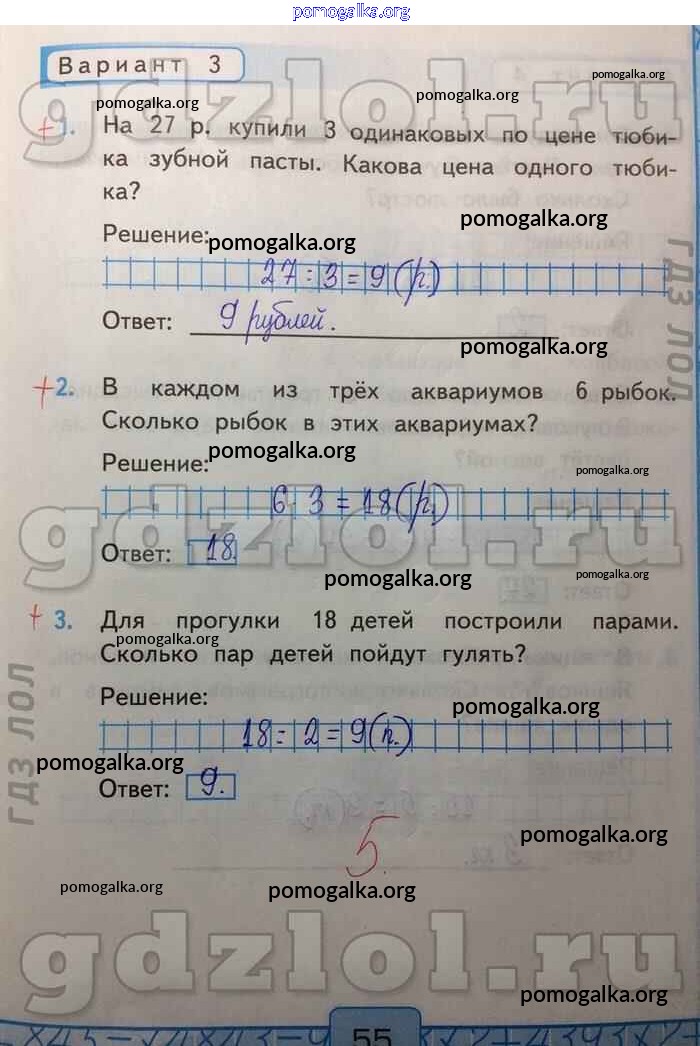 pomogalka.org
Вариант 3
pomogalka.org
pomogalka.org
pomogalka.org
gdzlol.ru
+ 1. На 27 р. купили 3 одинаковых по цене тюби-
ка зубной пасты. Какова цена одного тюби-
ка?
pomogalka.org
Решение:
pomogalka.org
27 : 3 = 9 (р.)
Ответ: 9 рублей.
pomogalka.org
ГДЗ ЛОЛ
+ 2. В каждом из трёх аквариумов 6 рыбок.
Сколько рыбок в этих аквариумах?
Решение:
pomogalka.org
pomogalka.org
6 · 3 = 18 (р.)
gdzlol.ru
Ответ: 18.
pomogalka.org
pomogalka.org
+ 3. Для прогулки 18 детей построили парами.
pomogalka.org
Сколько пар детей пойдут гулять?
Решение:
pomogalka.org
18 : 2 = 9 (п.)
pomogalka.org
ГДЗ ЛОЛ
Ответ: 9.
5
pomogalka.org
pomogalka.org
pomogalka.org
gdzlol.ru
pomogalka.org
55